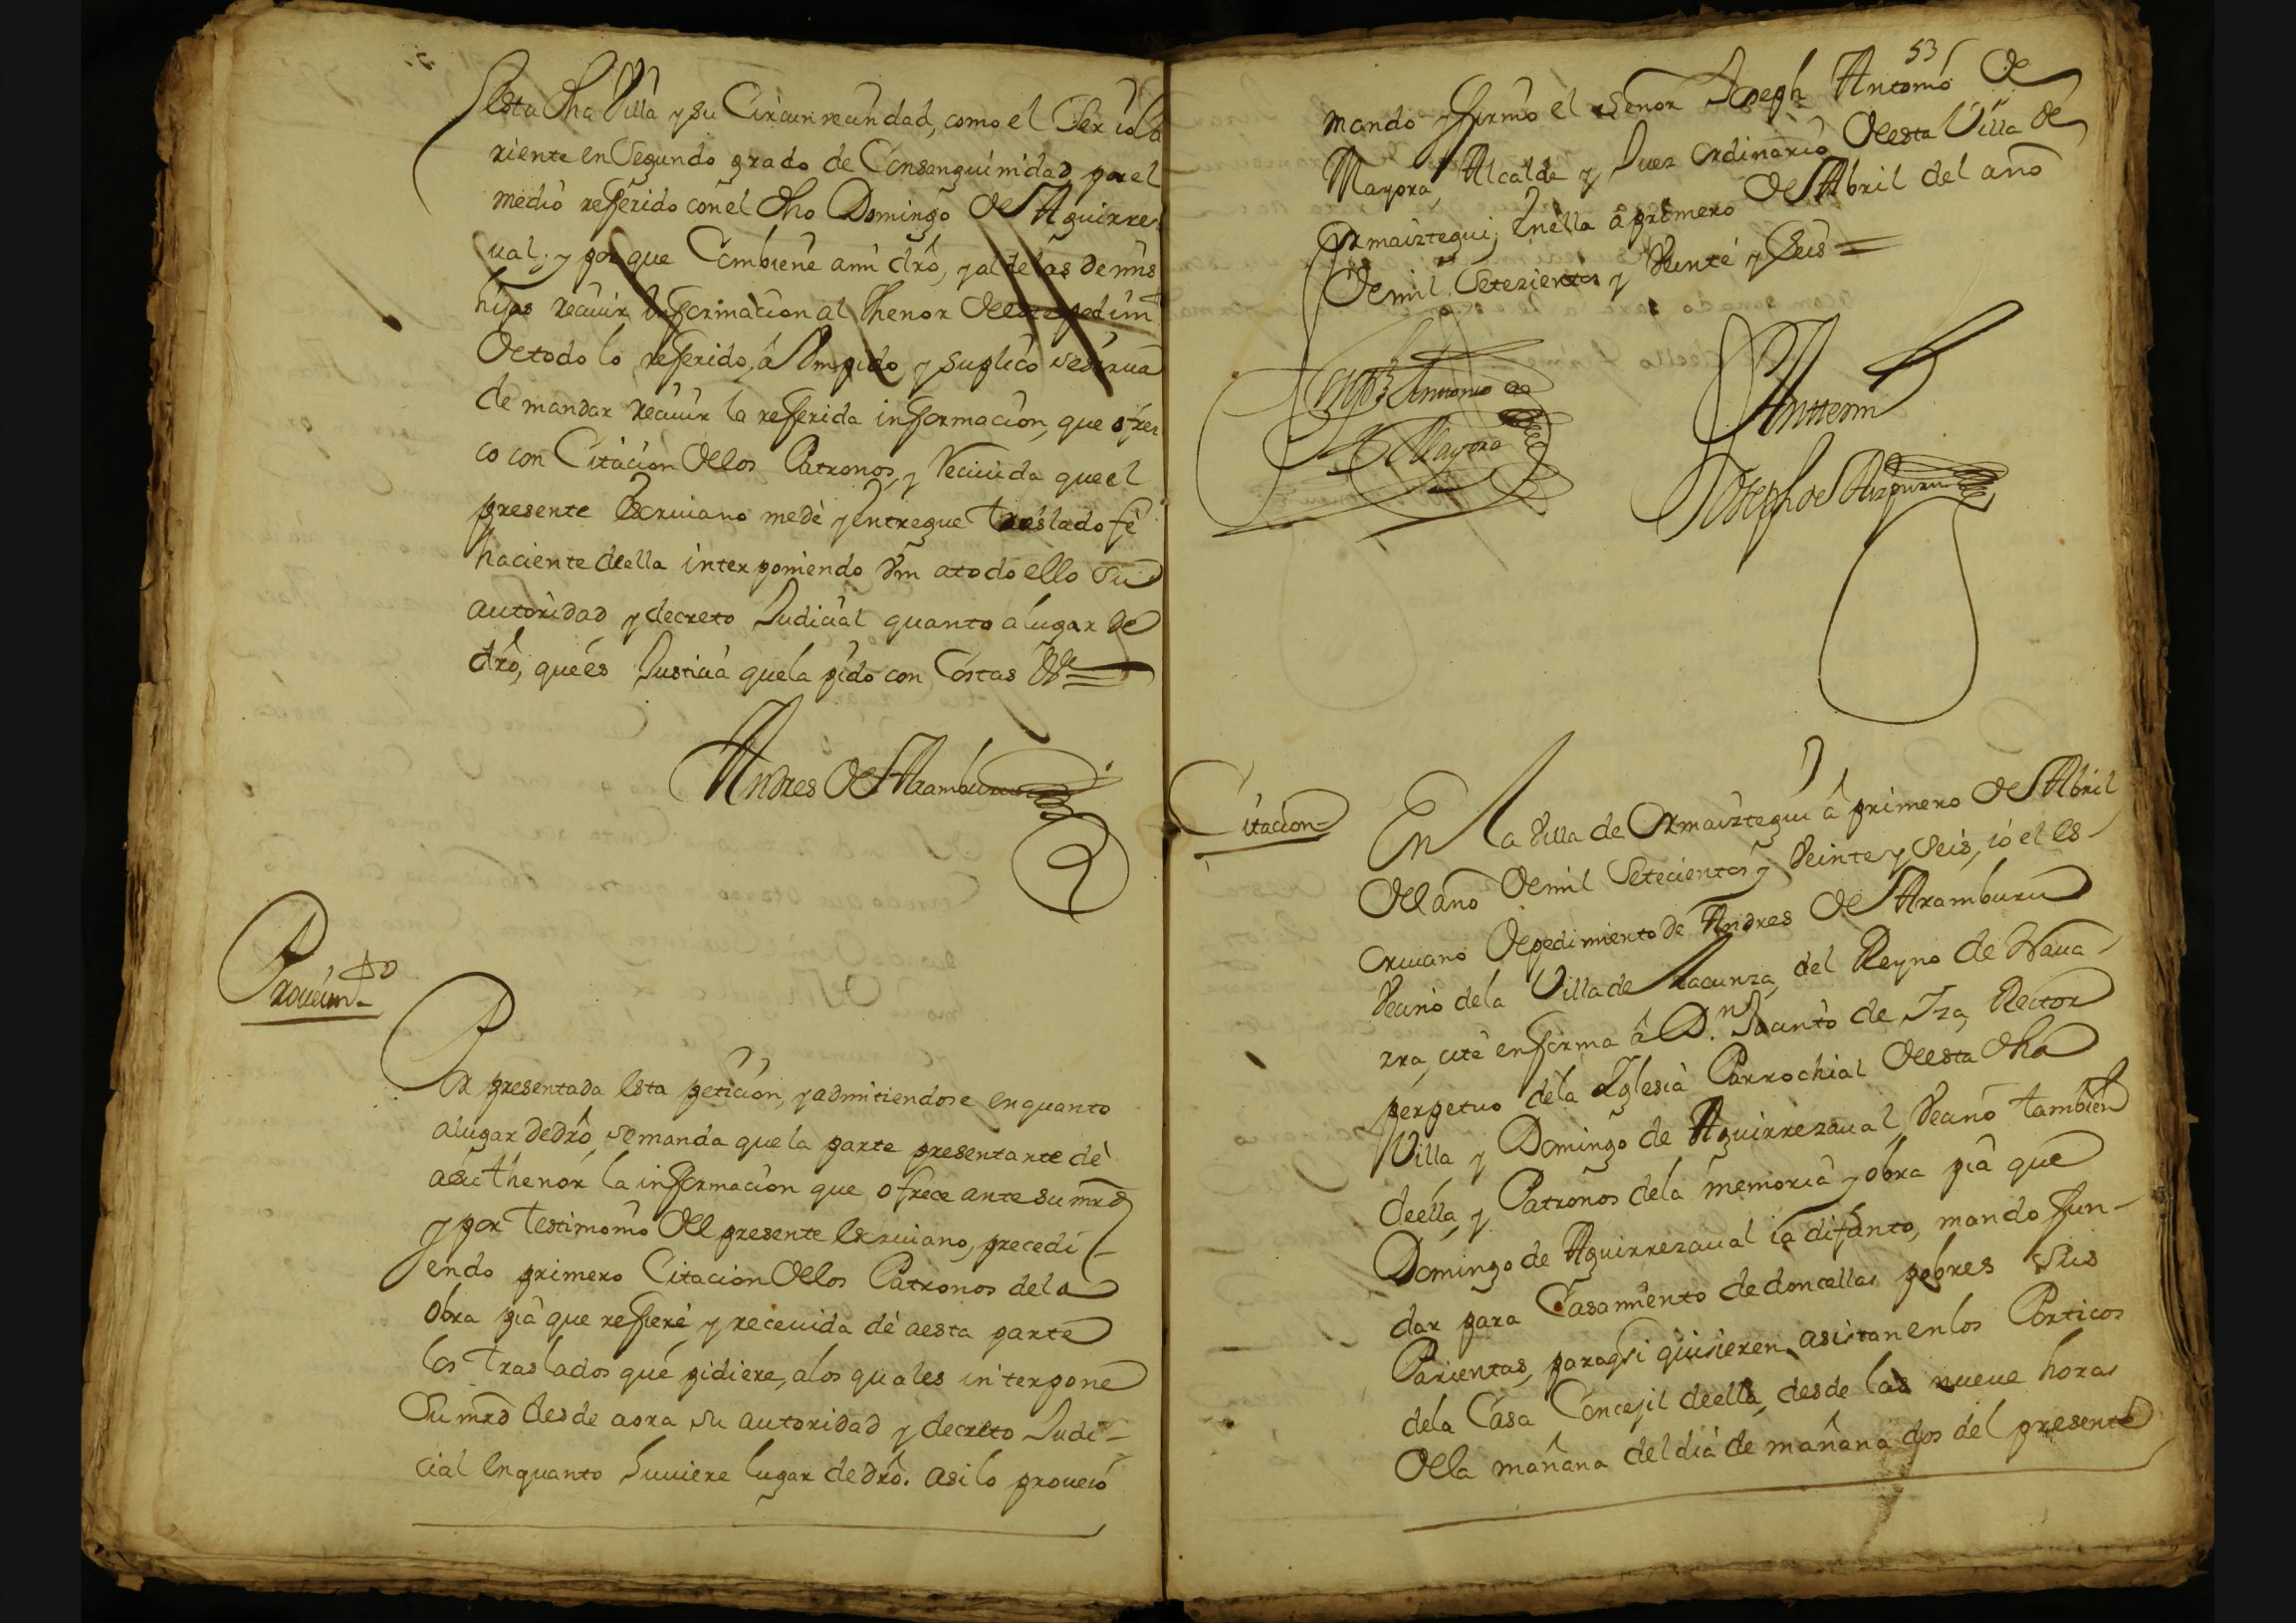 esta dha Villa y su Circunvecindad, como el Ser io Pa
riente en Segundo grado de Consanguinidad por el
medio refferido con el dho Domingo de Aguirreza
ual; y por que Combiene a mi drô, y al de las de mis
hijas reciuir Informacion al thenor de este pedimto
de todo lo refferido, â Vm pido y suplico se sirua
de mandar reciuir la refferida informacion, que ofrez
co con Citacion de los Patronos, y Reciuida que el
presente Escriuano me dè y entregue traslado fè
haciente de ella interponiendo Vm a todo ello su
autoridad y decreto Judicial quanto a lugar de
drô, que es Justicia que la pido con Costas &ª
Andres de Aramburu
Proueimto
Por presentada esta peticion, y admitiendose en quanto
a lugar de drô, se manda que la parte presentante dè
a su thenor la informacion que ofrece ante su mrd
y por testimonio del presente escriuano, precedi-
endo primero Citacion de los Patronos de la
obra pia que reffiere y receuida dè a esta parte
los traslados que pidiere, a los quales interpone
Su mrd desde aora su autoridad y decreto Judi-
cial en quanto huuiere lugar de drô. asi lo proueió
53
mando y firmo el señor Joseph Antonio de
Mayora, Alcalde y Juez ordinario de esta Villa de
Ormaiztegui, en ella â primero de Abril del año
de mil Setezientos y Veinte y Seis
Joseph Antonio de
Mayora
Antte mi
Joseph de Aizpuru
Citacion
En la Villa de Ormaiztegui â primero de Abril
del año de mil Setecientos y Veinte y Seis, io el es-
criuano de pedimiento de Andres de Aramburu
Vecino de la Villa de Lacunza, del Reyno de Naua-
rra, cite en forma â Dn. Jacinto de Iza, Rector
perpetuo de la Iglesia Parrochial de esta dha
Villa y Domingo de Aguirrezaual, Vecino tambien
de ella, y Patronos de la memoria y obra pia que
Domingo de Aguirrezaual ia difunto, mando fun-
dar para Casamiento de doncellas pobres sus
Parientas, para q si quisieren asistan en los Porticos
de la Casa Concejil de ella, desde las nueue horas
de la mañana del dia de mañana dos del presente